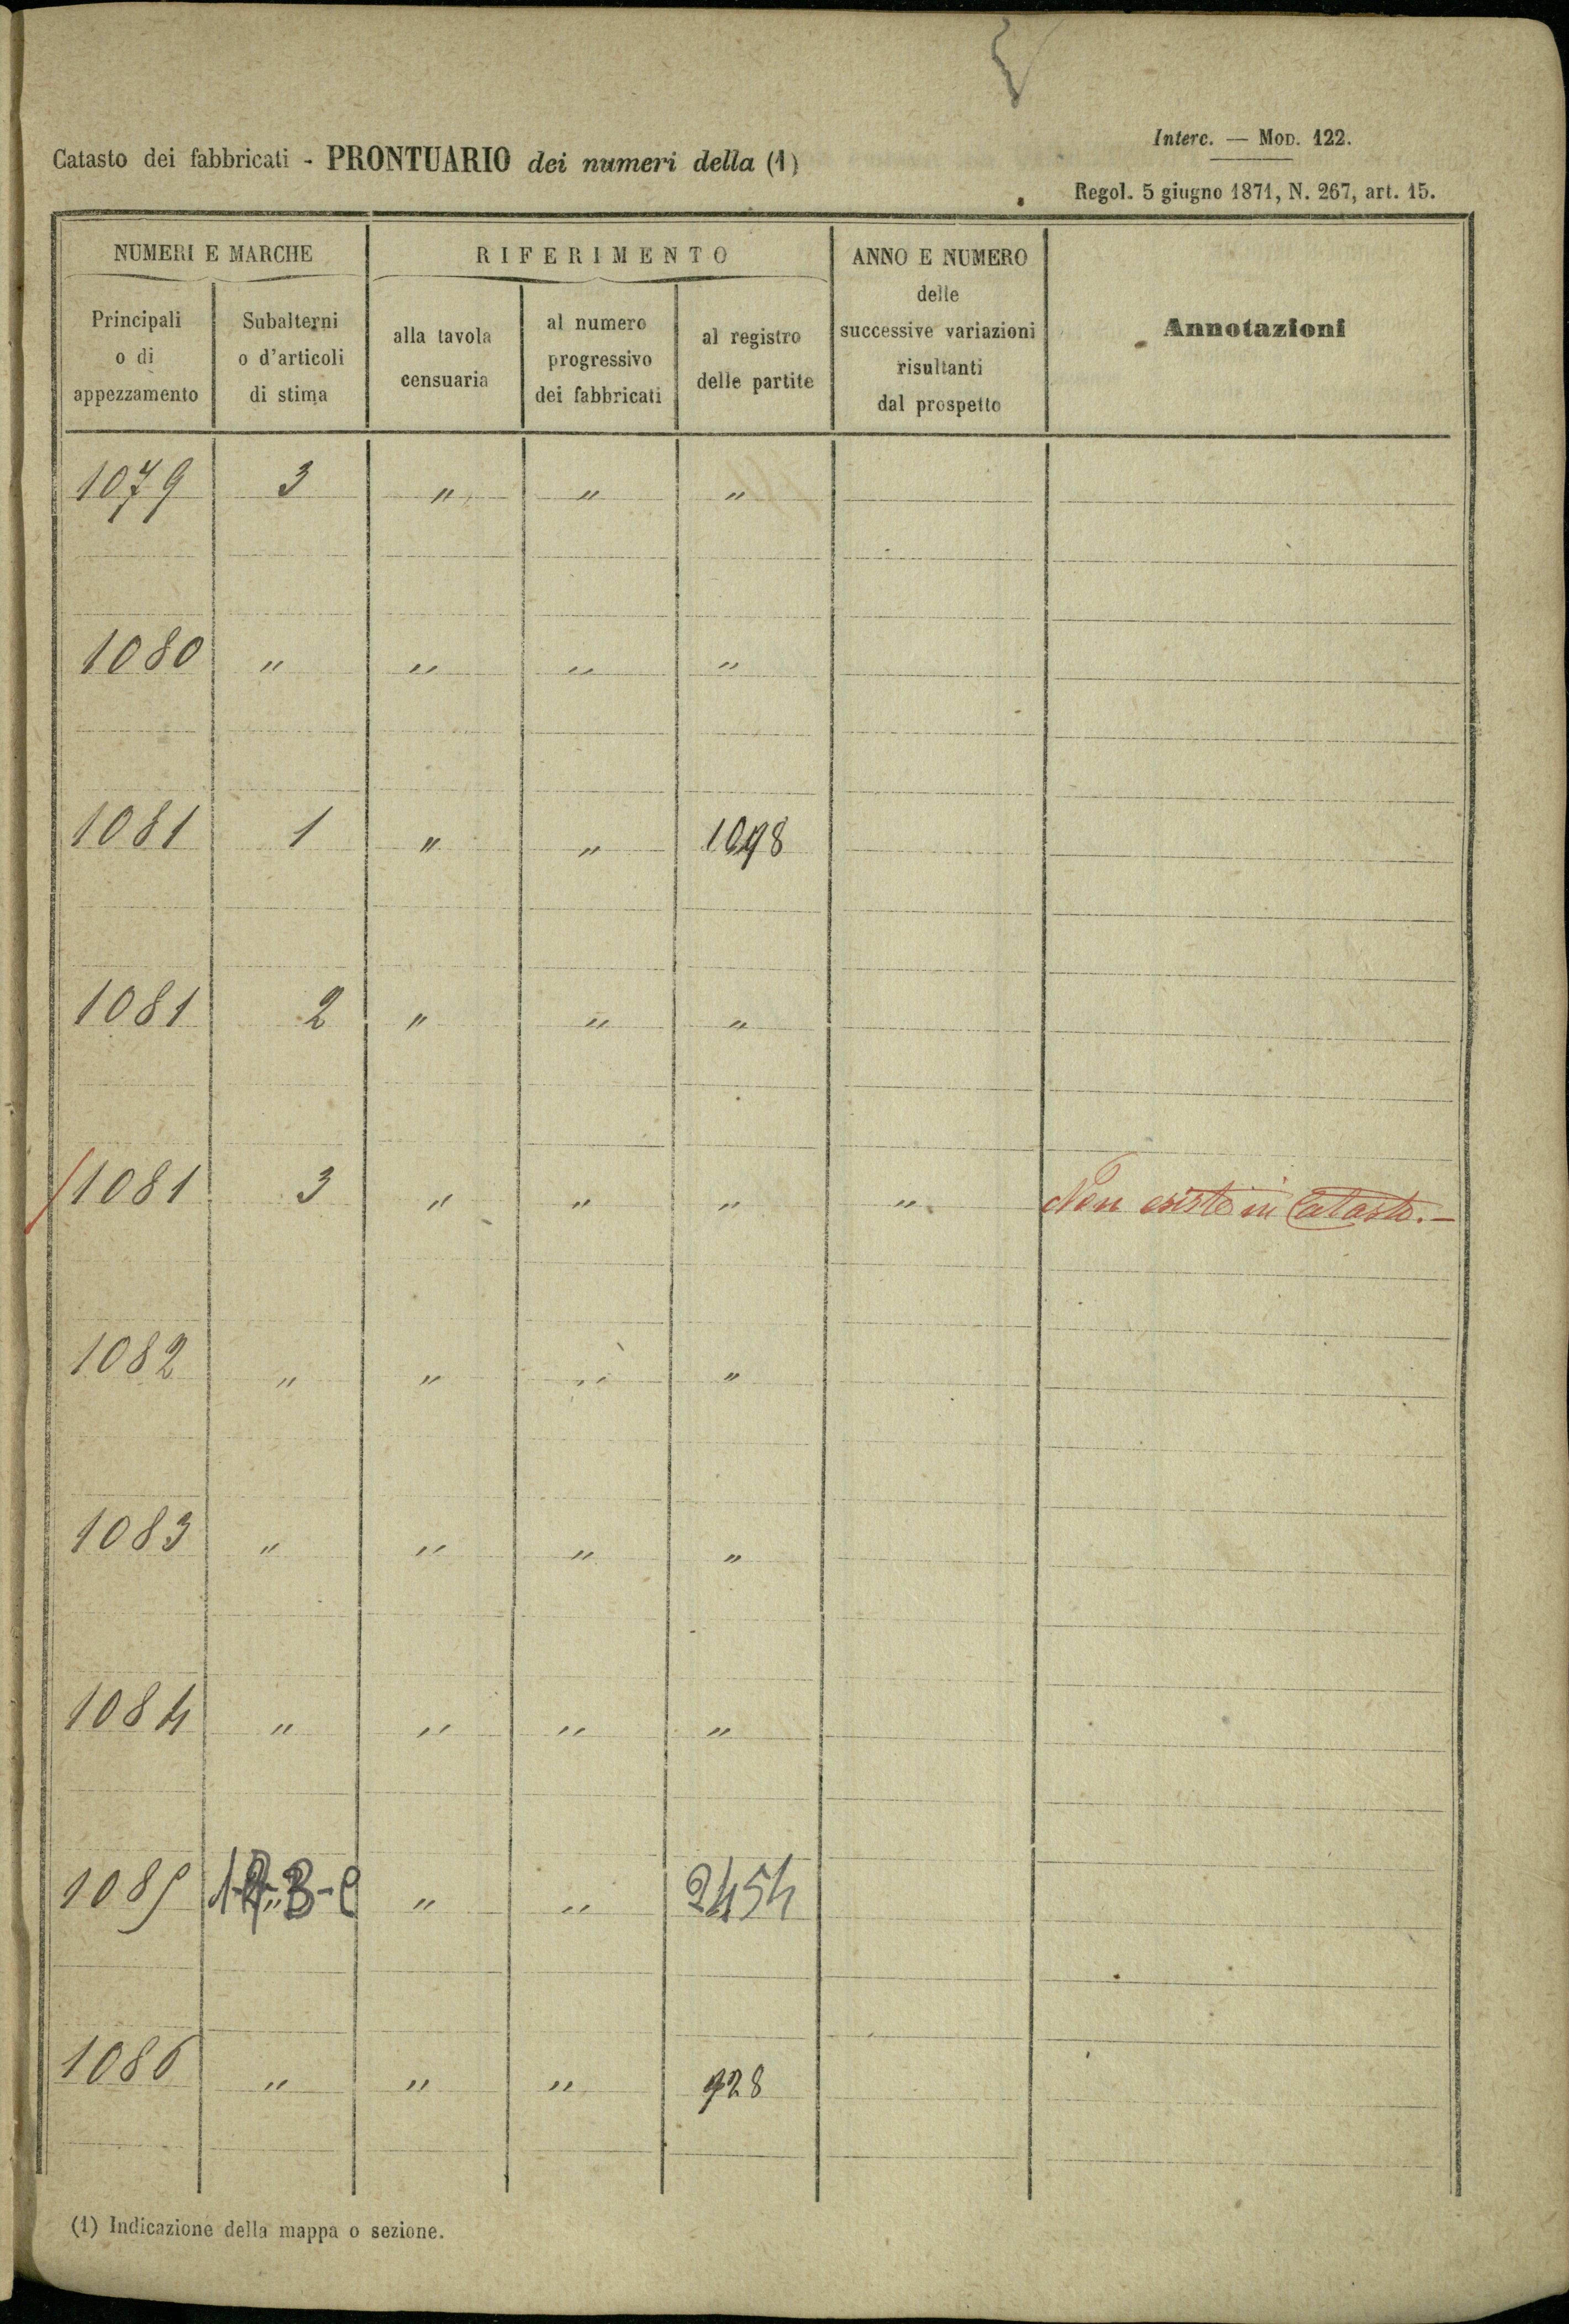 Interc. — Mod. 122.
Catasto dei fabbricati - PRONTUARIO dei numeri della (1)
Regol. 5 giugno 1871, N. 267, art. 15.
NUMERI E MARCHE
RIFERIMENTO
ANNO E NUMERO
delle
successive variazioni
risultanti
dal prospetto
Annotazioni
Principali
o di
appezzamento
Subalterni
o d'articoli
di stima
alla tavola
censuaria
al numero
progressivo
dei fabbricati
al registro
delle partite
1079 3 " " "
1080 " " " "
1081 1 " " 1098
1081 2 " " "
1081 3 " " " " Non esiste in Catasto.-
1082 " " " "
1083 " " " "
1084 " " " "
1085 " " 2454
1086 " " " 928
(1) Indicazione della mappa o sezione.